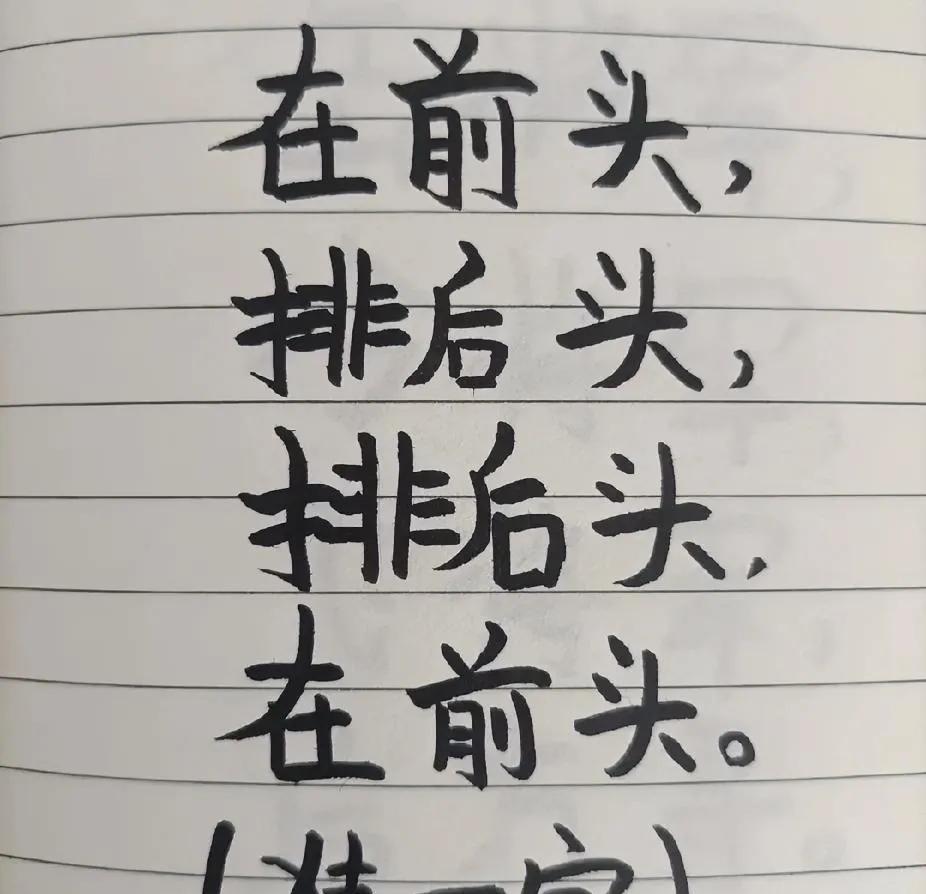 在前头,
排后头,
排后头,
在前头。
(猜一字)